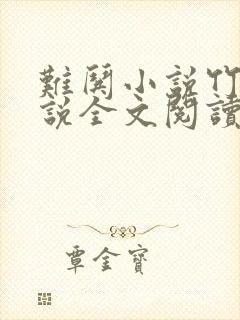 難關小說竹
說全文閱讀
覃金寶